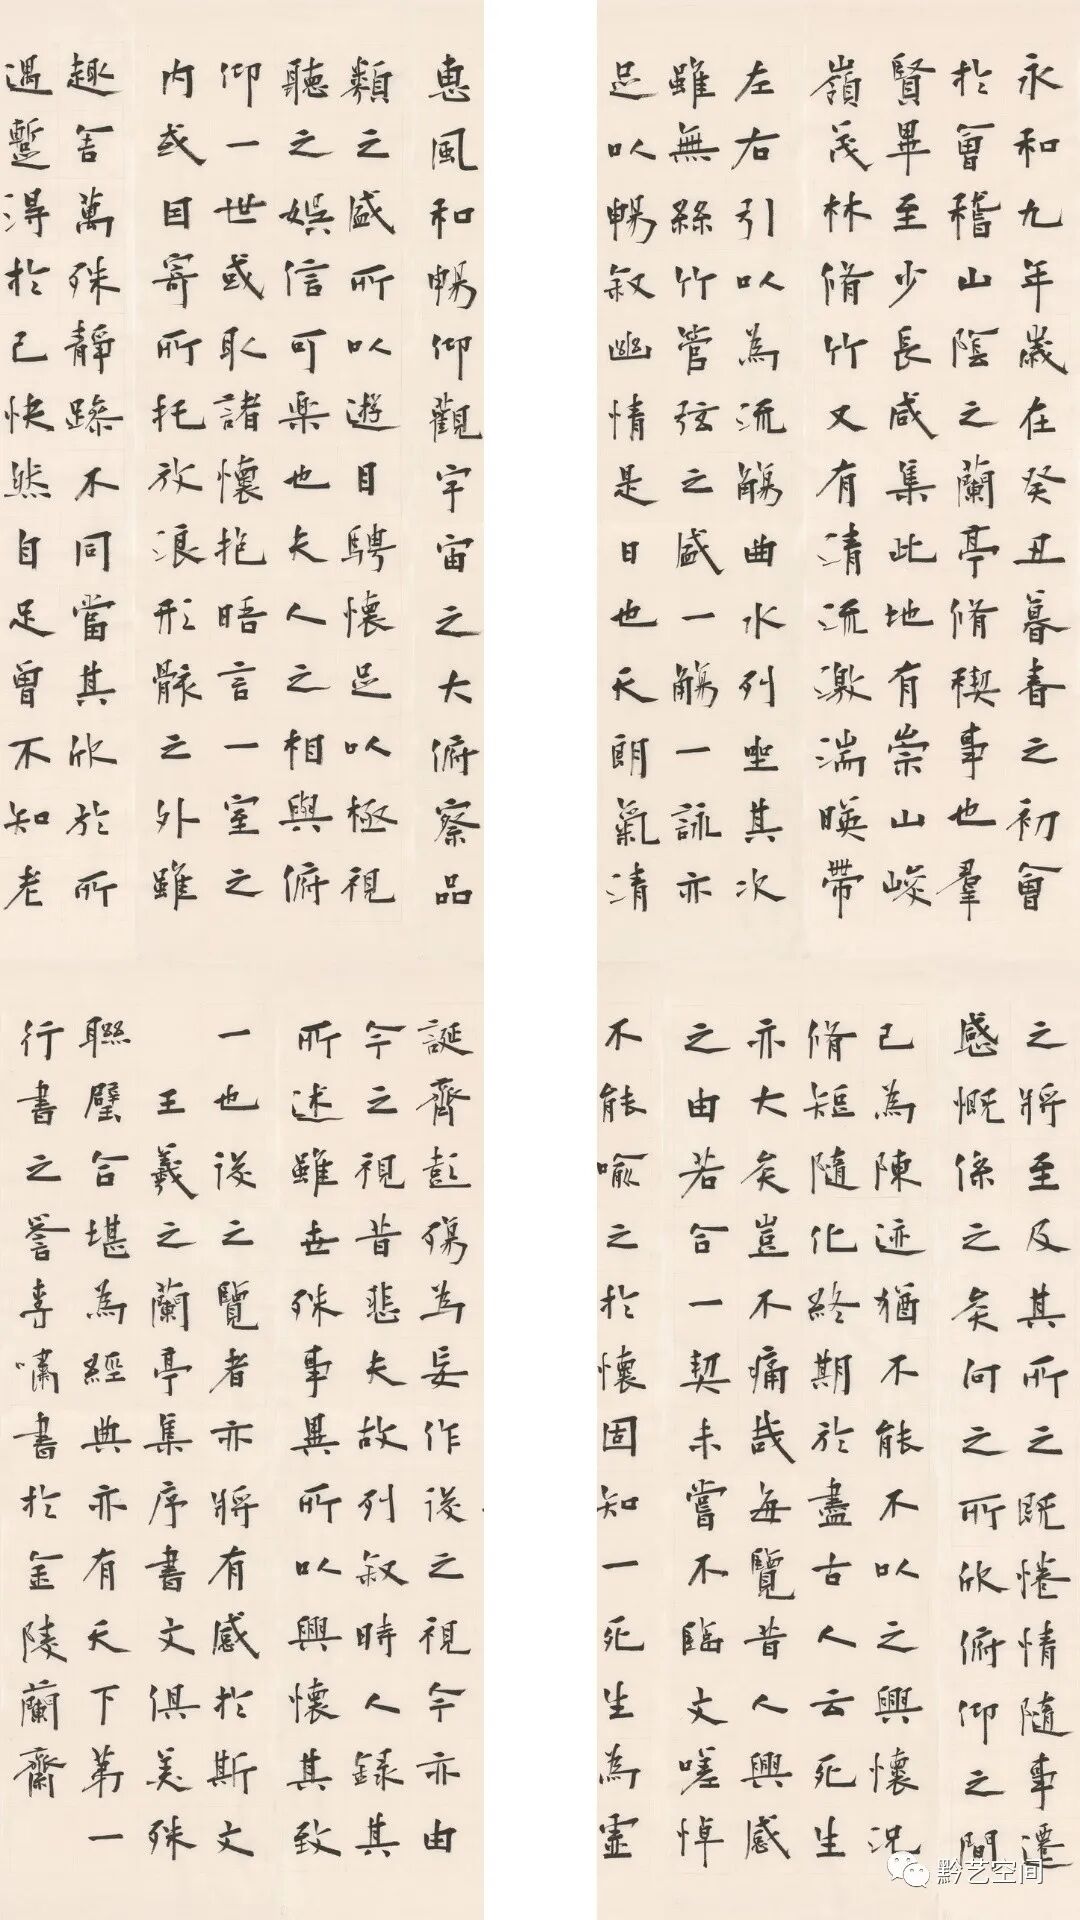 永和九年歲在癸丑暮春之初會
於會稽山陰之蘭亭脩稧事也羣
賢畢至少長咸集此地有崇山峻
嶺茂林脩竹又有清流激湍暎帶
左右引以為流觴曲水列坐其次
雖無絲竹管弦之盛一觴一詠亦
足以暢敘幽情是日也天朗氣清
惠風和暢仰觀宇宙之大俯察品
類之盛所以遊目騁懷足以極視
聽之娛信可樂也夫人之相與俯
仰一世或取諸懷抱晤言一室之
內或因寄所托放浪形骸之外雖
趣舍萬殊靜躁不同當其欣於所
遇蹔得於己快然自足曾不知老
之將至及其所之既惓情隨事遷
感慨係之矣向之所欣俯仰之間
已為陳迹猶不能不以之興懷況
脩短隨化終期於盡古人云死生
亦大矣豈不痛哉每覽昔人興感
之由若合一契未嘗不臨文嗟悼
不能喻之於懷固知一死生為虛
誕齊彭殤為妄作後之視今亦由
今之視昔悲夫故列敘時人錄其
所述雖世殊事異所以興懷其致
一也後之覽者亦將有感於斯文
王羲之蘭亭集序書文俱美殊
聯璧合堪為經典亦有天下第一
行書之譽李嘯書於金陵蘭齋
黔艺空间